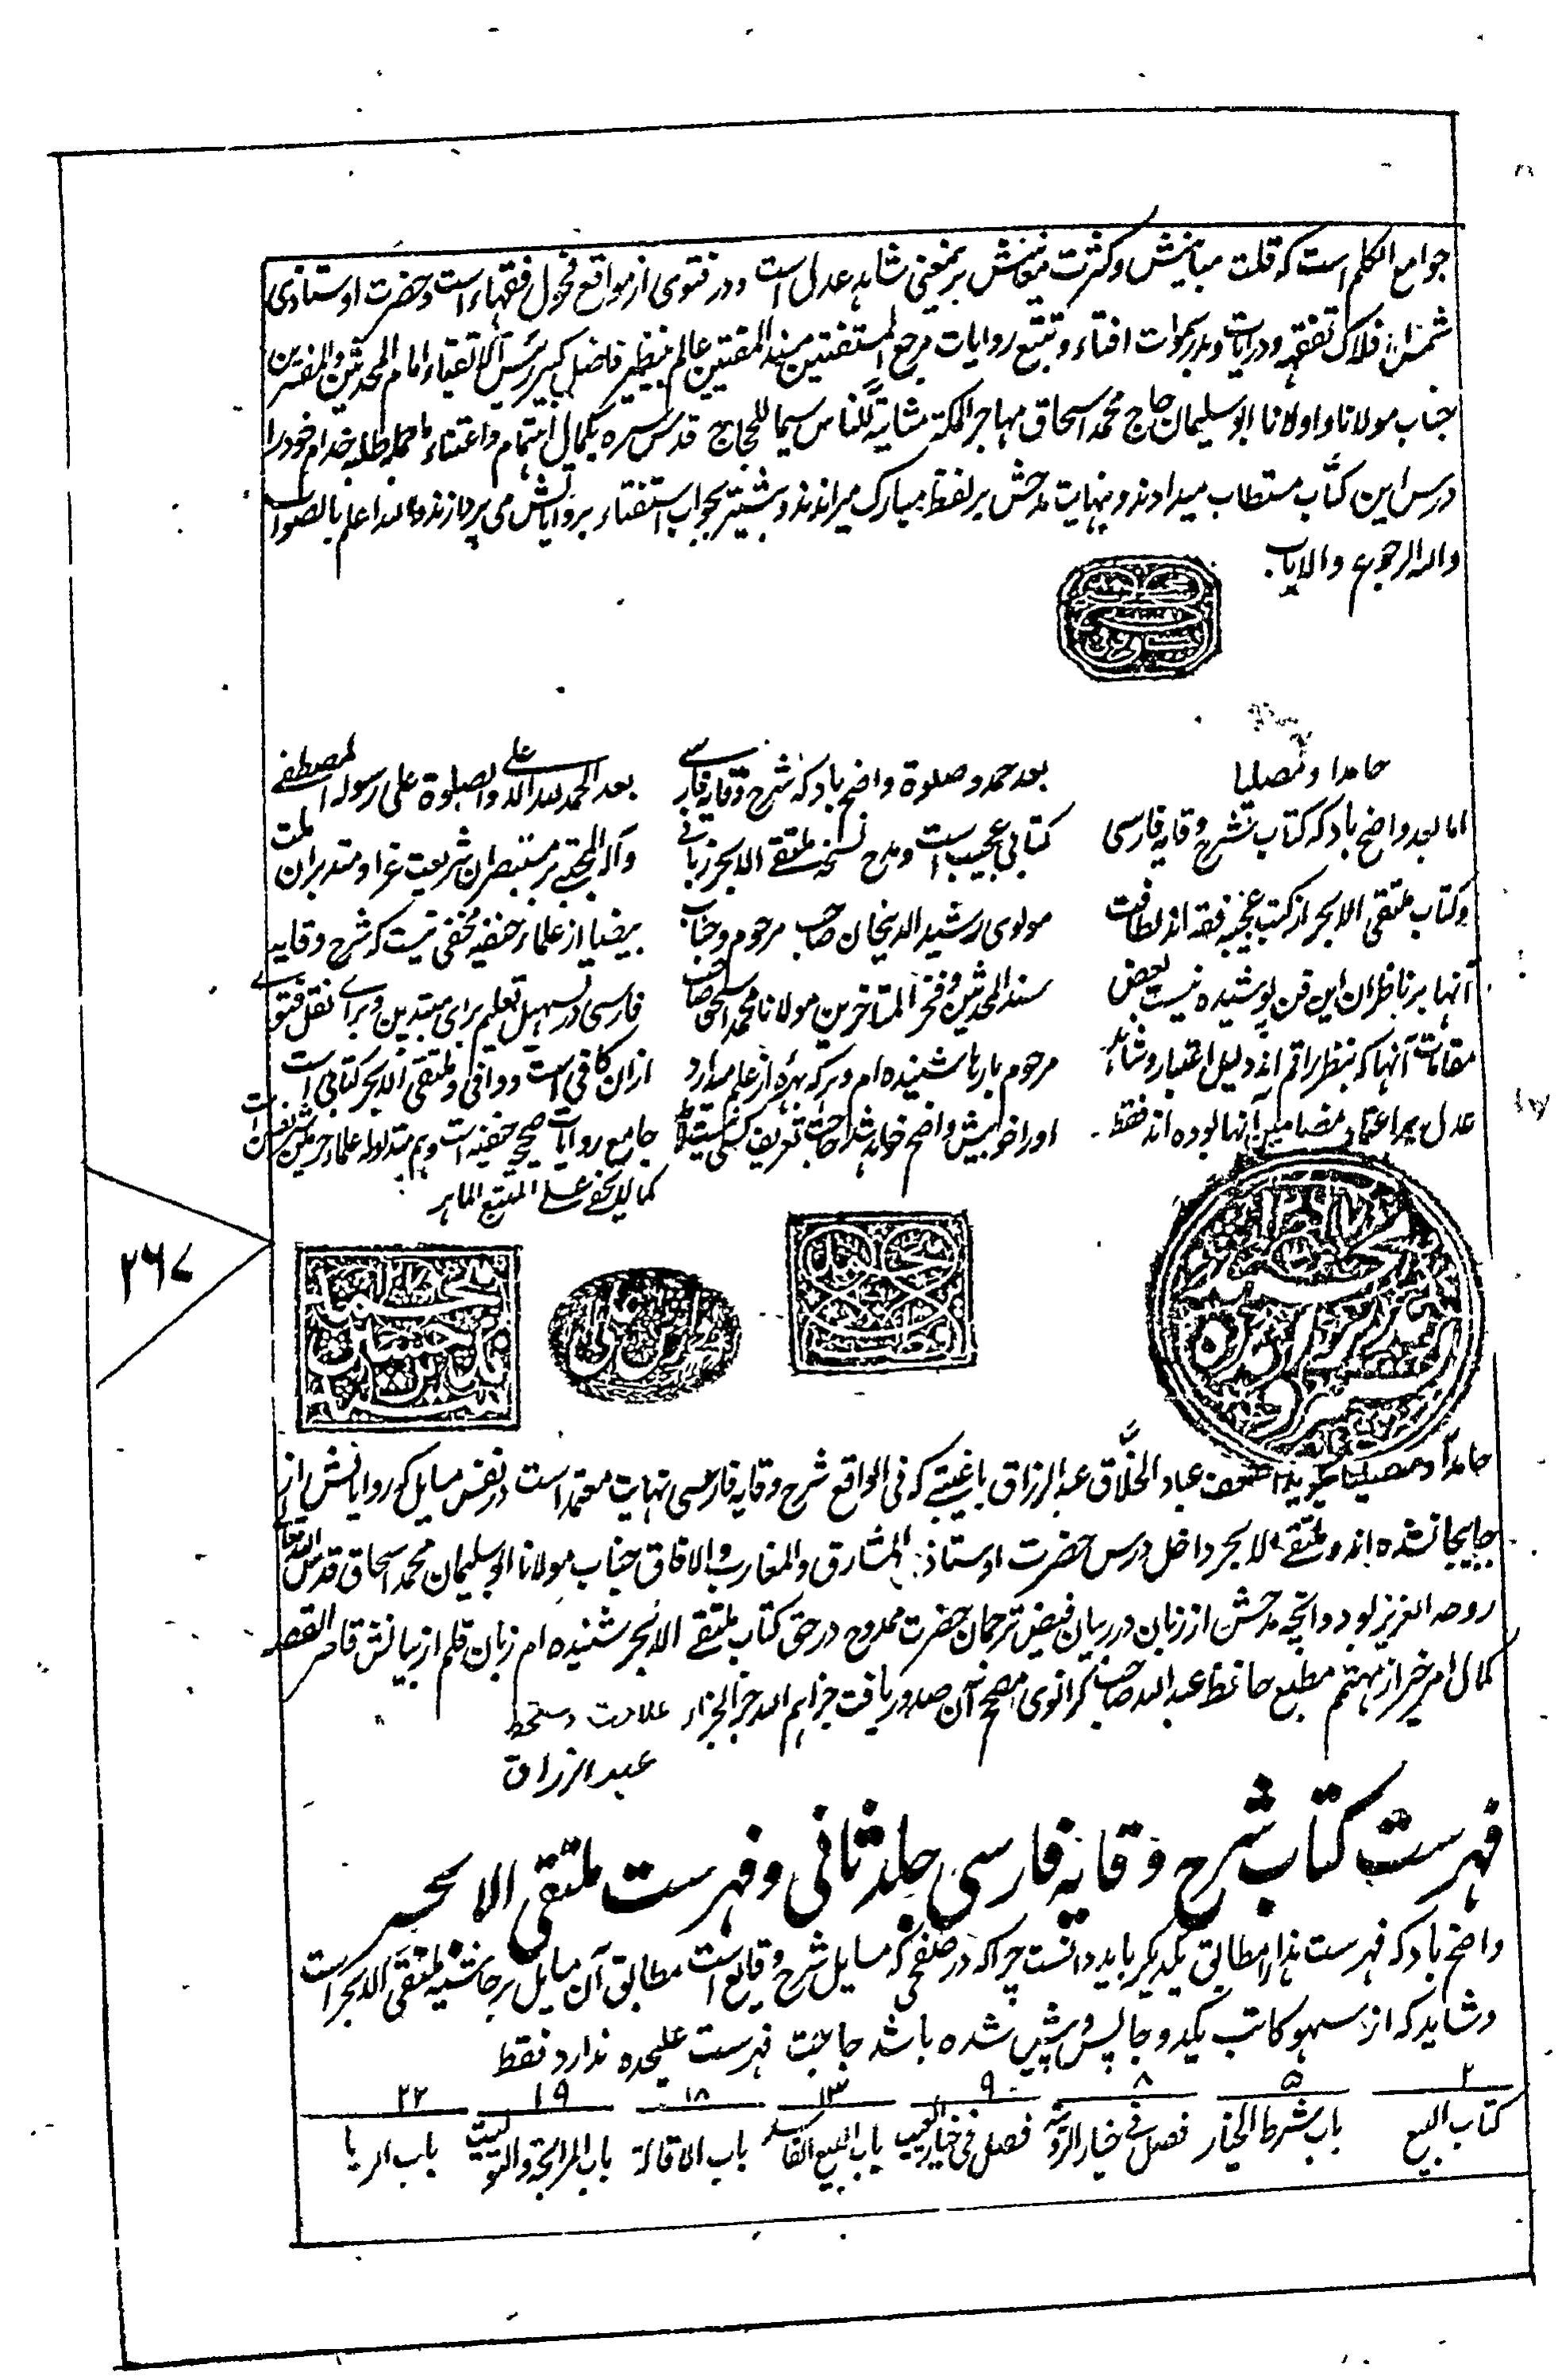 جوامع الکلم است که قلت مبانیش و کثرت معانیش بر معنی شاهد عدل است و در فتوی از مواقع فحول فقهاء است و حضرت اوستاذی
شمس افلاک تفقه و درایات و بدر سموات افتاء و تتبع روایات مرجع المستفتین سند المفتین عالم بینظیر فاضل کبیر رئیس الاتقیاء امام المحدثین والمفسرین
جناب مولانا و اولانا ابو سلیمان حاج محمد اسحاق مهاجر المکة مثابة للناس سیما للحاج قدس سره بکمال اهتمام و اعتناء طلبه خدام خود را
درس این کتاب مستطاب میدادند و نهایت مدحش بر لفظ مبارک میراندند و بیشتر بجواب استفتاء بروایاتش می پردازند والله اعلم بالصواب
والیه الرجوع والایاب
حامدا و مصلیا
اما بعد واضح باد که کتاب شرح وقایه فارسی
و کتاب ملتقی الابحر از کتب عجیبه فقه اند لطافت
آنها بر ناظران این فن پوشیده نیست بعض
مقامات آنها که بنظر راقم اند دلیل اعتبار و شاهد
عدل بر اعتماد مضامین آنها بوده اند فقط
بعد حمد و صلوة واضح باد که شرح وقایه فارسی
کتابی عجیب است و مدح نسخه ملتقے الابحر زبانی
مولوی رشید الدینخان صاحب مرحوم و جناب
سند المحدثین و فخر المتاخرین مولانا محمد اسحق صاحب
مرحوم بارها شنیده ام و هر که بهره از علم میدارد
او را خوبیش واضح خواهد شد حاجت تعریف کسی نیست
بعد الحمد لله العلی والصلوة علی رسوله المصطفے
وآله المجتبے بر مستبصران شریعت غرا و متدبران ملت
بیضیا از علماء حنفیه مخفی نیست که شرح وقایه
فارسی در تسهیل تعلیم برای مبتدین و برای نقل فتوے
ازان کافی است و وافی و ملتقی الابحر کتابی است
جامع روایات صحیحه حنفیه است و هم متداوله علماء حرمین شریفین است
کما لا یخفے علے المتتبع الماهر
۲۶۷
حامدا و مصلیا میگوید اضعف عباد الخلاق عبد الرزاق باغپتے که فی الواقع شرح وقایه فارسی نهایت معتمد است در نفس مسایل که روایاتش از
جابجا شده اند و ملتقے الابحر داخل درس حضرت اوستاذ المشارق والمغارب والافاق جناب مولانا ابو سلیمان محمد اسحاق قدس الله تعالے
روحه العزیز بود و آنچه مدحش از زبان در ربیان فیض ترجمان حضرت ممدوح در حق کتاب ملتقے الابحر شنیده ام زبان قلم از بیانش قاصر القصه
کمال امر خیر از مهتمم مطبع حافظ عبد الله صاحب کرانوی مصحح آن صدور یافت جزاهم الله خیر الجزاء علامت دستخط
عبد الرزاق
فهرست کتاب شرح وقایه فارسی جلد ثانی و فهرست ملتقی الابحر
واضح باد که فهرست هذا را مطابق یکدیگر باید دانست چراکه در صفحی که مسایل شرح وقایع است مطابق آن مسایل بر حاشیه ملتقی الابحر است
و شاید که از سهو کاتب یکدو جا پس و پیش شده باشد حاجت فهرست علیحده ندارد فقط
۲ ۵ ۸ ۹ ۱۳ ۱۸ ۱۹ ۲۲
کتاب البیع باب شرط الخیار فصل فی خیار الرویة فصل فی خیار العیب باب البیع الفاسد باب الاقالة باب المرابحة والتولیت باب الربا